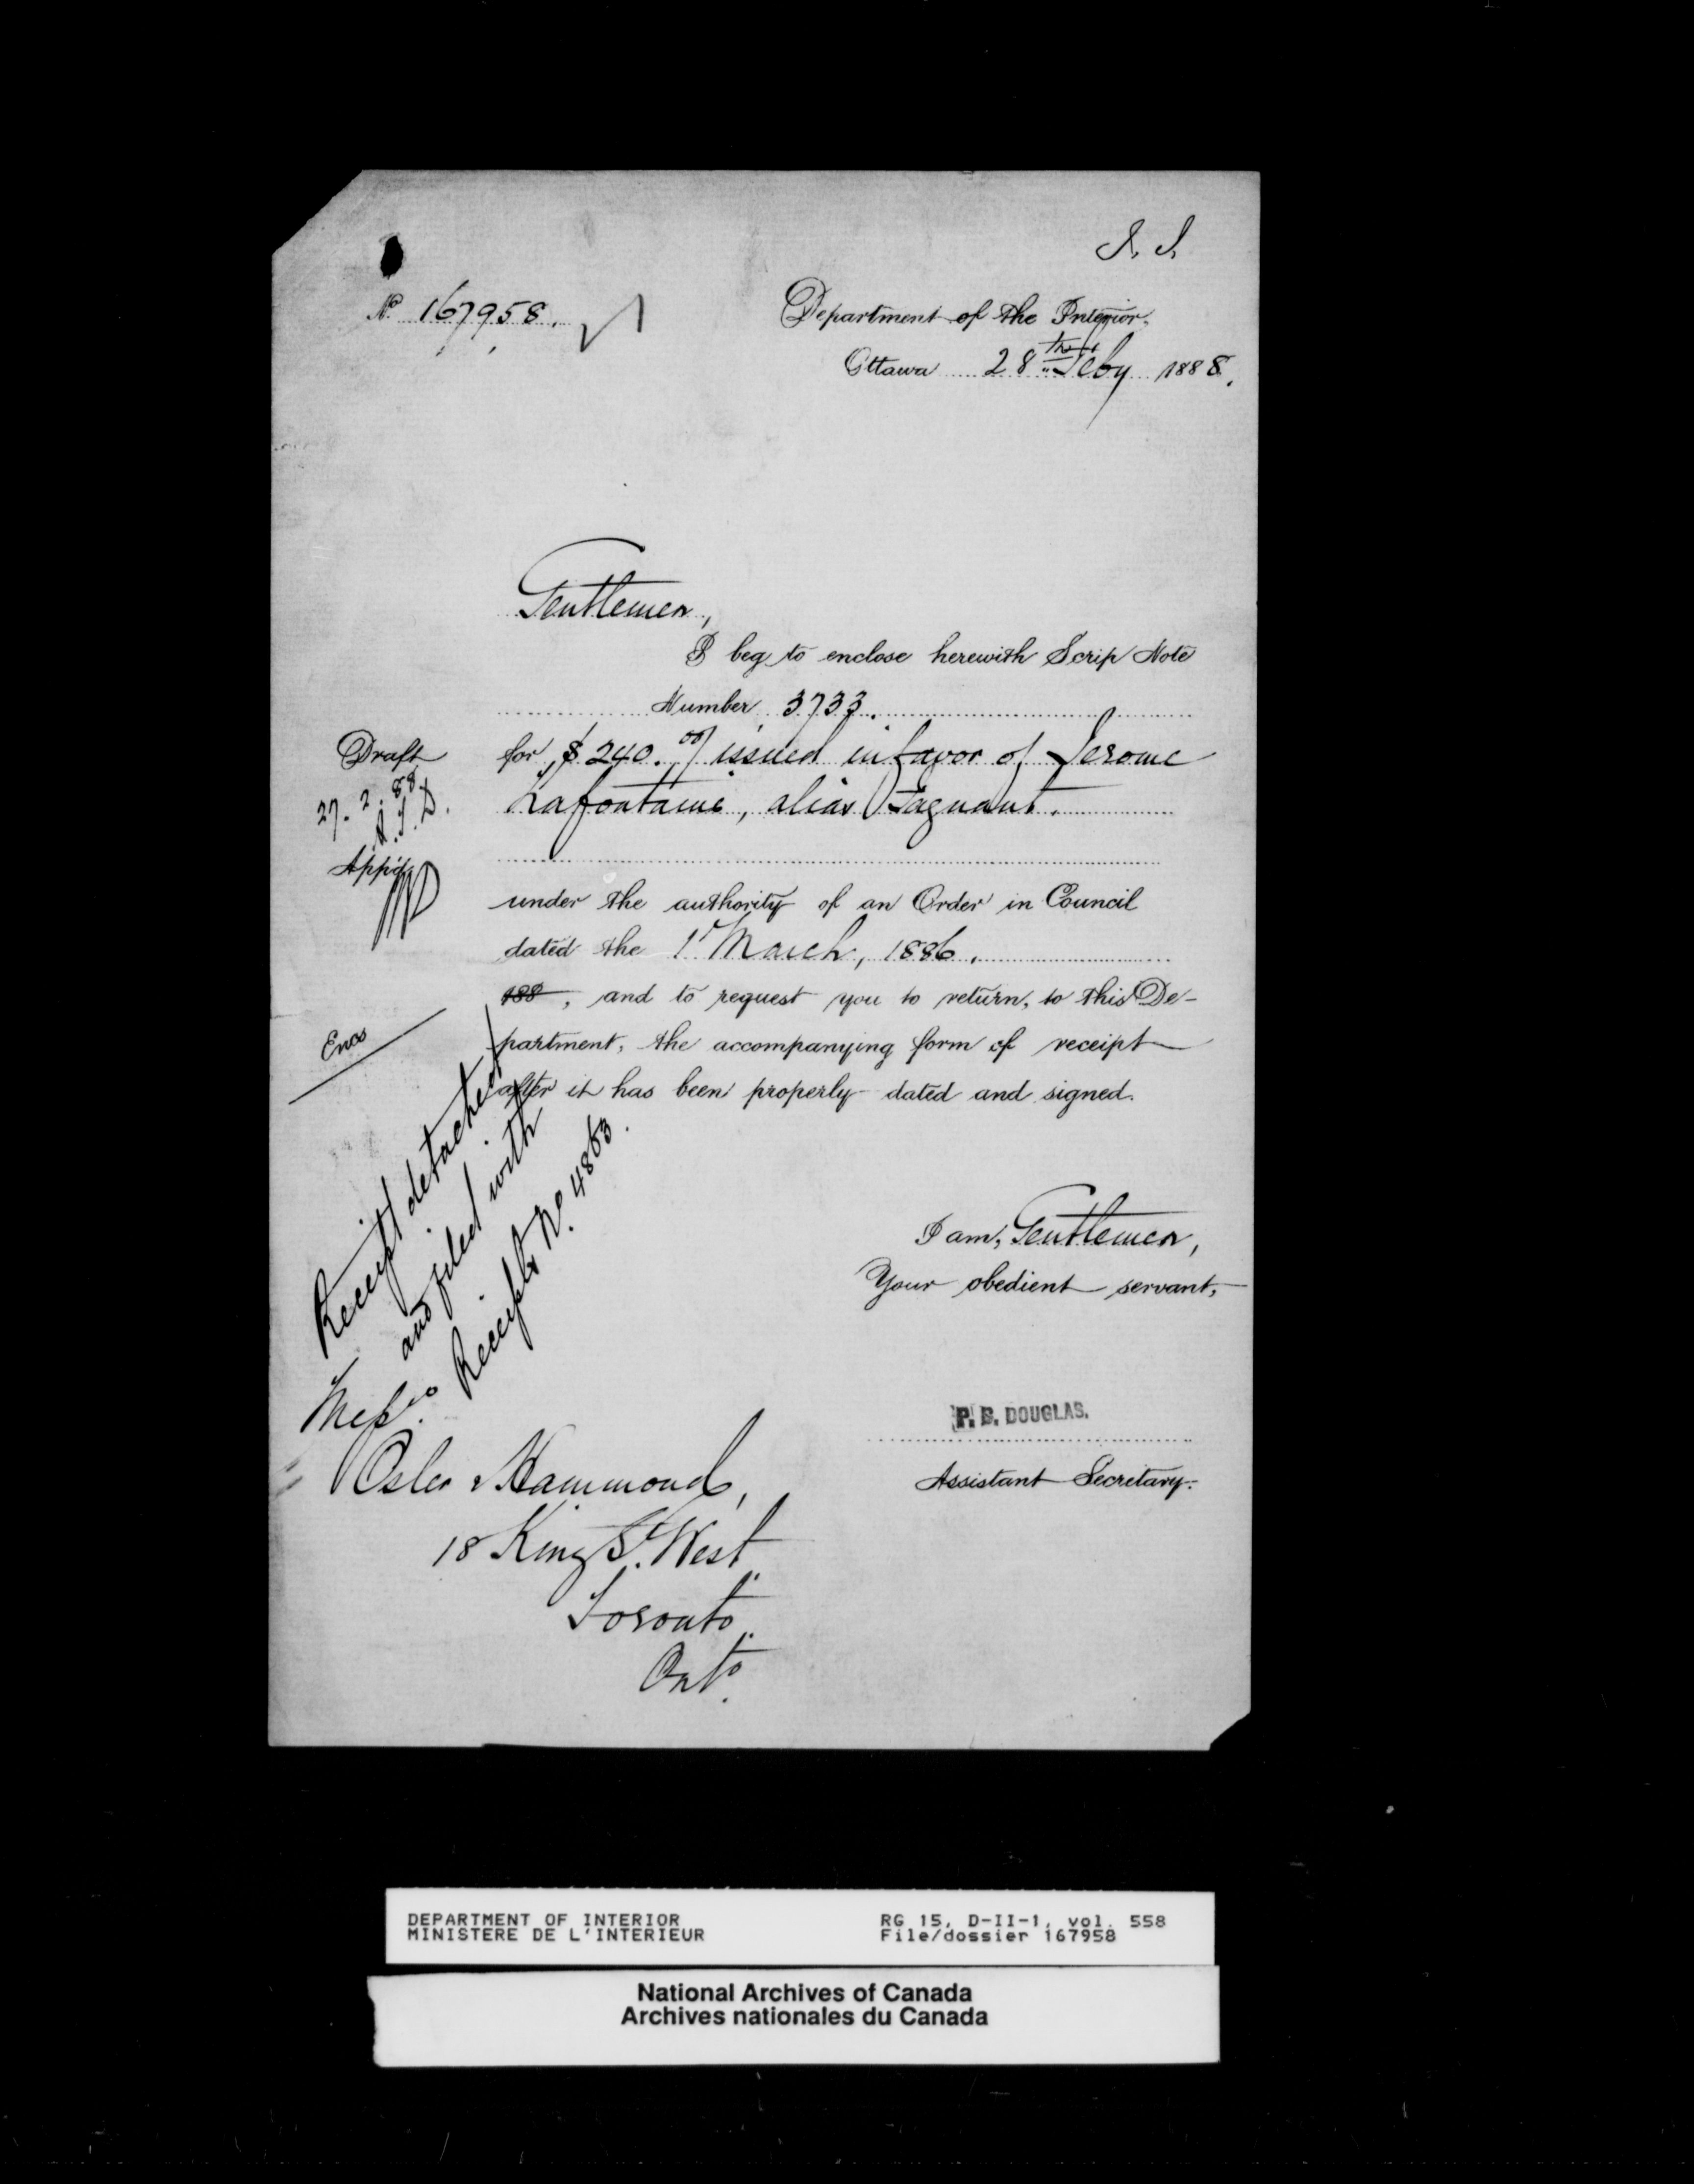 No 167958.
Department of the Interior.
Ottawa 28th Feby 1888.
Gentlemen,
I beg to enclose herewith Scrip Note
Number 3733.
for $240.00/ issued in favor of Jerome
Lafontaine, alias Fagnant.
under the authority of an Order in Council
dated the 1st March, 1886.
188 , and to request you to return, to this De-
partment, the accompanying form of receipt
after it has been properly dated and signed.
Draft
27. 2. 88.
App'd
Encs
Receipt detached
and filed with
Receipt No. 4863.
I am, Gentlemen,
Your obedient servant,
P. B. DOUGLAS.
Assistant Secretary.
Messrs.
Osler & Hammond,
18 King St. West
Toronto
Onto.
DEPARTMENT OF INTERIOR
MINISTERE DE L'INTERIEUR
RG 15, D-II-1, vol. 558
File/dossier 167958
National Archives of Canada
Archives nationales du Canada